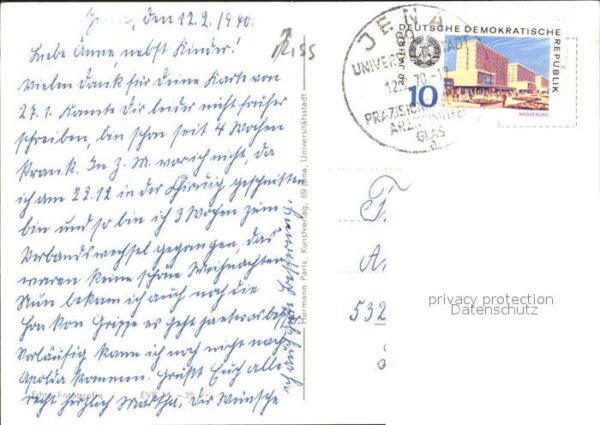 Jena, den 12.2.1970.
Liebe Änne, nebst Kinder!
Vielen Dank für Deine Karte von
27.1. Konnte Dir leider nicht früher
schreiben, bin schon seit 4 Wochen
krank. In Z. M. war ich nicht, da
ich am 22.12 in der Chirurgie geschnitten
bin und so bin ich 3 Wochen zum
Verbandswechsel gegangen, das
waren keine schöne Weihnachten
Nun bekam ich auch noch die
Hon Kon Grippe es geht ja etwas besser
Vorläufig kann ich noch nicht nach
Apolda kommen. Grüßt Euch alle
recht herzlich Martha, Dir Wünsche
baldige Besserung
Echte Fotografie EVP
Hermann Paris, Kunstverlag, 69 Jena, Universitätsstadt
JENA
UNIVERSITÄTSSTADT
12.2.70-17
PRÄZISION
ARZNEIMITTEL
GLAS
a
DEUTSCHE DEMOKRATISCHE
REPUBLIK
20 JAHRE
10
MAGDEBURG
532
privacy protection
Datenschutz